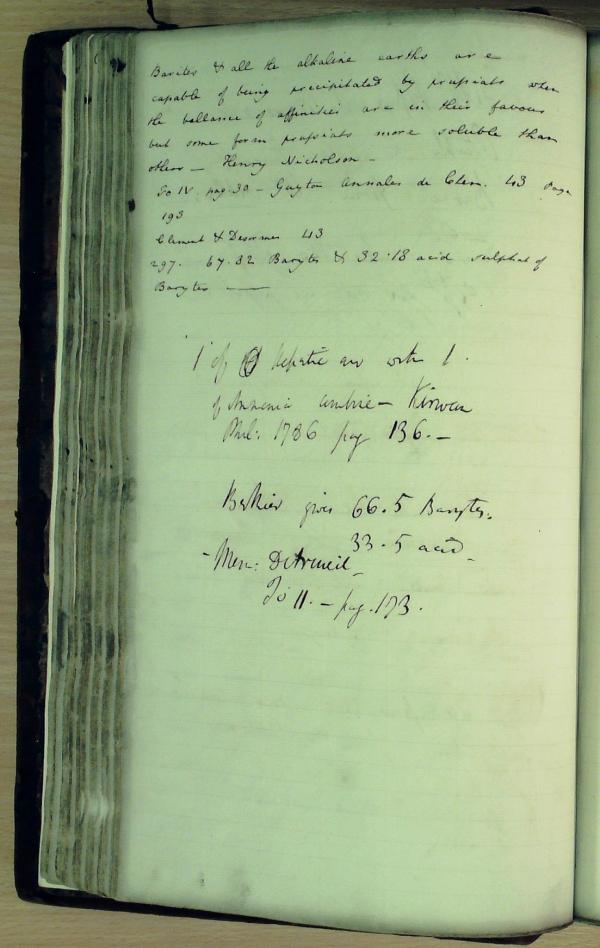 Barites & all the alkaline earths are
capable of being precipitated by prussiats when
the ballance of affinities are in their favour
but some form prussiats more soluble than
others — Henry Nicholson —
To IV pag 30 — Guyton Annales de Chem. 43 Page
193
Clement & Desormes 43
297. 67.82 Barytes & 32.18 acid sulphat of
Barytes —
1 of hepatic air with 1.
of Ammonia combine — Kirwan
Phil: 1786 pag 136. —
Berthier gives 66.5 Barytes.
33.5 acid —
- Mem: D'Arcueil —
To 11. — pag. 173.